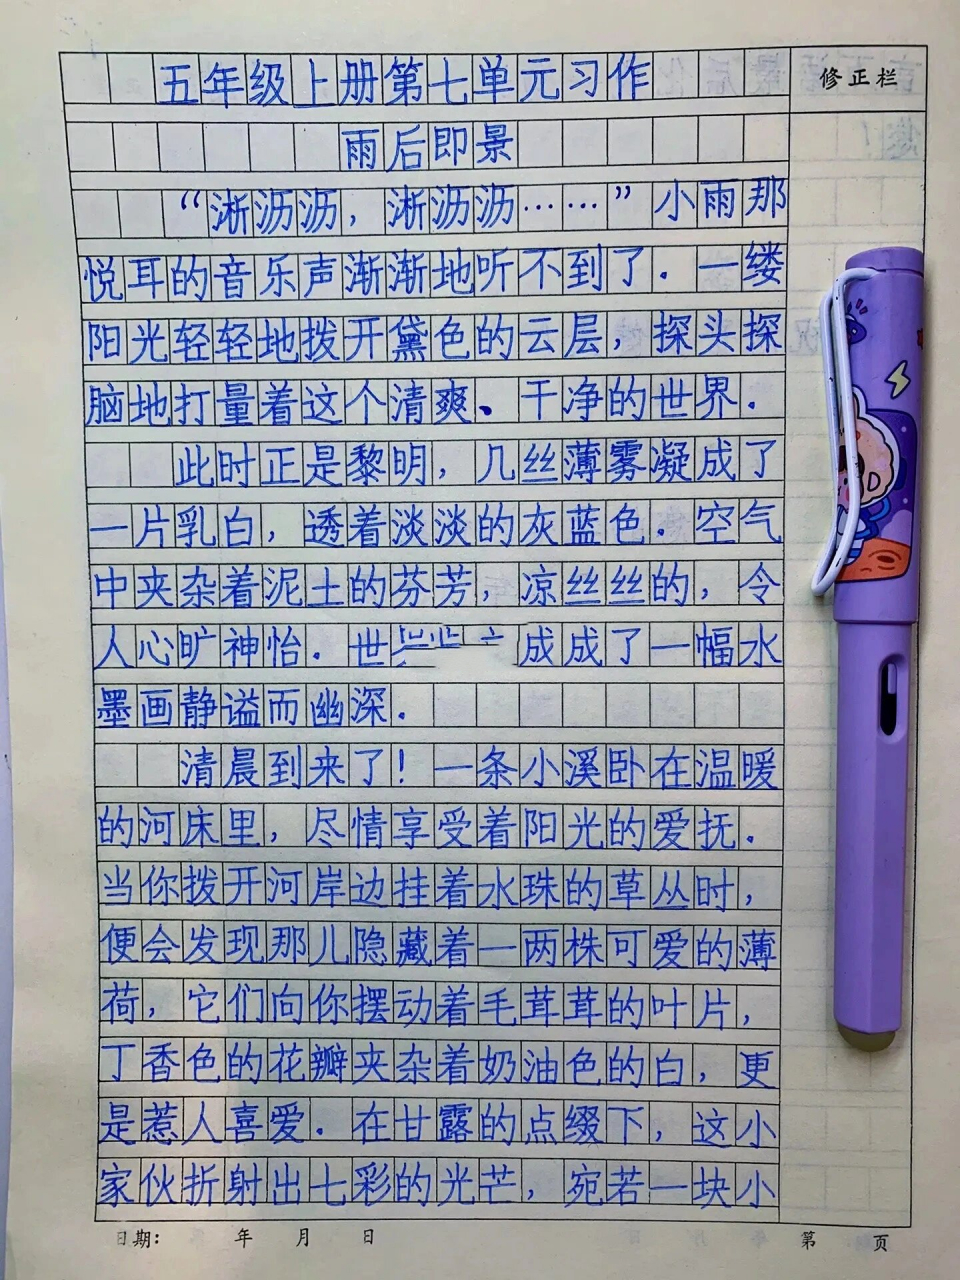 五年级上册第七单元习作
修正栏
雨后即景
“淅沥沥，淅沥沥……”小雨那
悦耳的音乐声渐渐地听不到了．一缕
阳光轻轻地拨开黛色的云层，探头探
脑地打量着这个清爽、干净的世界．
此时正是黎明，几丝薄雾凝成了
一片乳白，透着淡淡的灰蓝色．空气
中夹杂着泥土的芬芳，凉丝丝的，令
人心旷神怡．世 成成了一幅水
墨画静谧而幽深．
清晨到来了！一条小溪卧在温暖
的河床里，尽情享受着阳光的爱抚．
当你拨开河岸边挂着水珠的草丛时，
便会发现那儿隐藏着一两株可爱的薄
荷，它们向你摆动着毛茸茸的叶片，
丁香色的花瓣夹杂着奶油色的白，更
是惹人喜爱．在甘露的点缀下，这小
家伙折射出七彩的光芒，宛若一块小
日期： 年 月 日 第 页